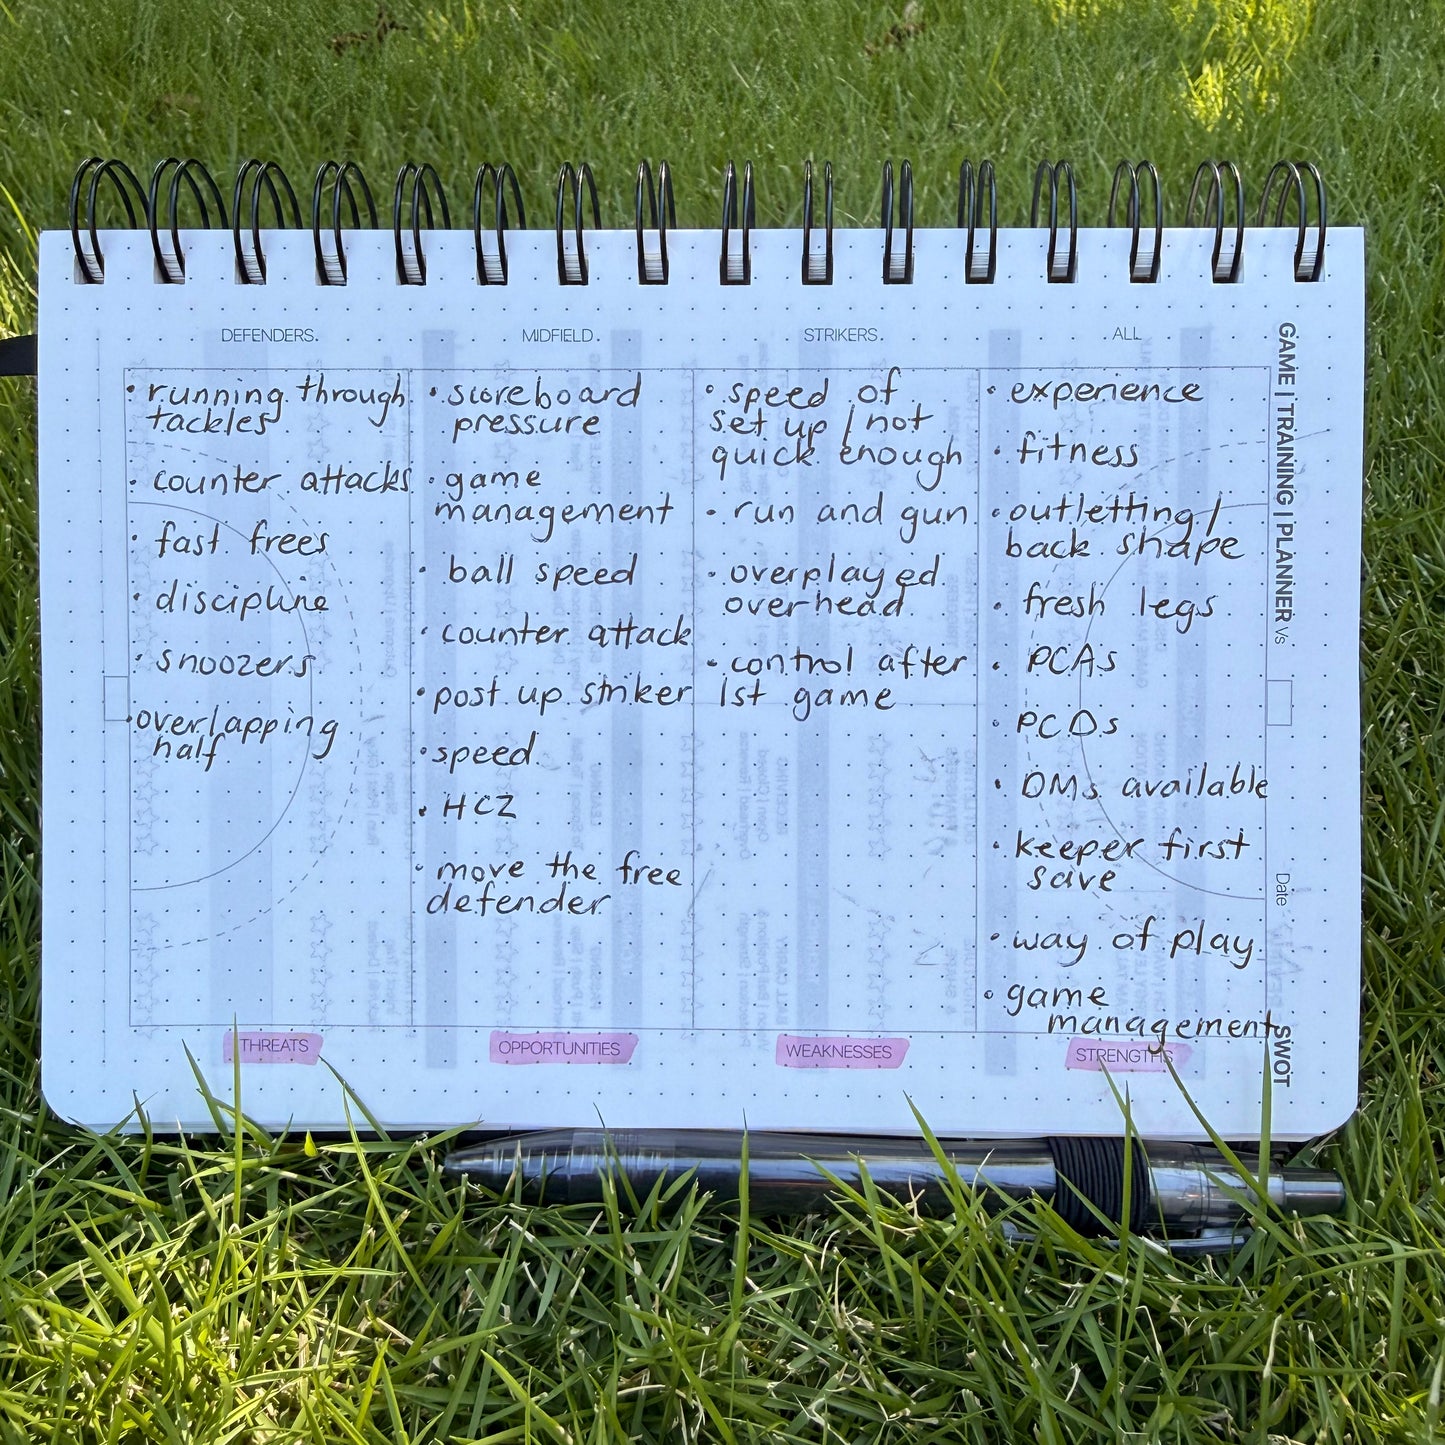 DEFENDERS
MIDFIELD
STRIKERS
ALL
• running through
tackles
• counter attacks
• fast frees
• discipline
• snoozers
• overlapping
half
THREATS
• scoreboard
pressure
• game
management
• ball speed
• counter attack
• post up striker
• speed
• HCZ
• move the free
defender
OPPORTUNITIES
• speed of
set up / not
quick enough
• run and gun
• overplayed
overhead
• control after
1st game
WEAKNESSES
• experience
• fitness
• outletting /
back shape
• fresh legs
• PCAs
• PCDs
• DMs available
• keeper first
save
• way of play
• game
management
STRENGTHS
GAME | TRAINING | PLANNER vs
Date
SWOT